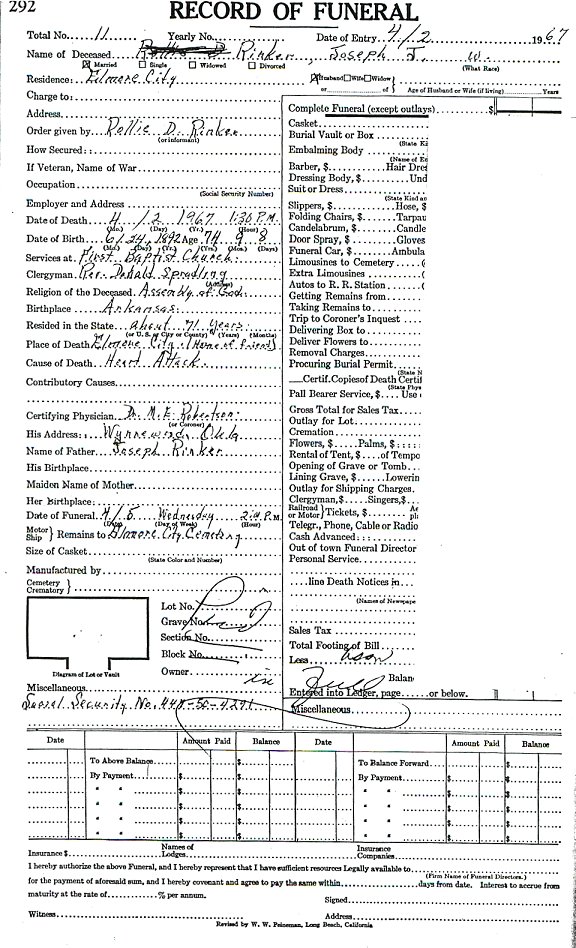 292
RECORD OF FUNERAL
Total No. 11 Yearly No. Date of Entry 4/2 1967
Name of Deceased Rinker, Joseph J. W.
☒ Married ☐ Single ☐ Widowed ☐ Divorced (What Race)
Residence: Elmore City ☒ Husband ☐ Wife ☐ Widow
or of Age of Husband or Wife (if living) Years
Charge to:
Address
Order given by Rollie D. Rinker
(or informant)
How Secured:
If Veteran, Name of War
Occupation
(Social Security Number)
Employer and Address
Date of Death 4 / 2 1967 1:30 P.M.
(Mo.) (Day) (Yr.) (Hour)
Date of Birth 6/24, 1892 Age 74 9 8
(Mo.) (Day) (Yr.) (Yrs.) (Mos.) (Days)
Services at First Baptist Church
(Address)
Clergyman Rev. Donald Spradling
Religion of the Deceased Assembly of God
Birthplace Arkansas
Resided in the State about 71 years.
(or U.S. or City or County) (Years) (Months)
Place of Death Elmore City (Home of Friend)
Cause of Death Heart Attack
Contributory Causes
Certifying Physician Dr. M. E. Robertson
(or Coroner)
His Address: Wynnewood, Okla
Name of Father Joseph Rinker
His Birthplace
Maiden Name of Mother
Her Birthplace:
Date of Funeral 4/5 Wednesday 2: P.M.
(Date) (Day of Week) (Hour)
Motor Ship } Remains to Elmore City Cemetery
Size of Casket
(State Color and Number)
Manufactured by
Cemetery Crematory }
Lot No.
Grave No.
Section No.
Block No.
Owner
Diagram of Lot or Vault
Miscellaneous
Social Security No. 440-50-4291
Complete Funeral (except outlays) $
Casket
Burial Vault or Box
(State Ki
Embalming Body
(Name of E
Barber, $ Hair Dres
Dressing Body, $ Und
Suit or Dress
(State Kind an
Slippers, $ Hose, $
Folding Chairs, $ Tarpau
Candelabrum, $ Candle
Door Spray, $ Gloves
Funeral Car, $ Ambula
Limousines to Cemetery (
Extra Limousines (
Autos to R. R. Station (
Getting Remains from
Taking Remains to
Trip to Coroner's Inquest
Delivering Box to
Deliver Flowers to
Removal Charges
Procuring Burial Permit
(State N
Certif. Copies of Death Certif
(State Phys
Pall Bearer Service, $ Use
Gross Total for Sales Tax
Outlay for Lot
Cremation
Flowers, $ Palms, $
Rental of Tent, $ of Tempo
Opening of Grave or Tomb
Lining Grave, $ Lowerin
Outlay for Shipping Charges
Clergyman, $ Singers, $
Railroad or Motor } Tickets, $ Ae pl
Telegr., Phone, Cable or Radio
Cash Advanced
Out of town Funeral Director
Personal Service
line Death Notices in
(Names of Newspape
Sales Tax
Total Footing of Bill
Less
Balan
Entered into Ledger, page or below.
Miscellaneous
Date Amount Paid Balance Date Amount Paid Balance
To Above Balance $ To Balance Forward $
By Payment $ By Payment $
" " $ " " $
" " $ " " $
" " $ " " $
" " $ " " $
Insurance $ Names of Lodges Insurance Companies
I hereby authorize the above Funeral, and I hereby represent that I have sufficient resources Legally available to
(Firm Name of Funeral Directors.)
for the payment of aforesaid sum, and I hereby covenant and agree to pay the same within days from date. Interest to accrue from
maturity at the rate of % per annum. Signed
Witness Address
Revised by W. W. Peineman, Long Beach, California